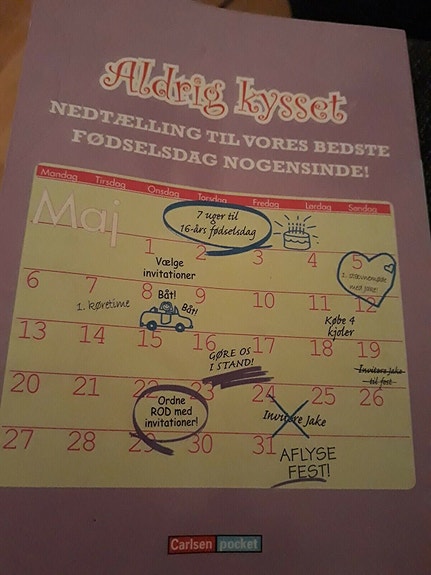 Aldrig kysset
NEDTÆLLING TIL VORES BEDSTE
FØDSELSDAG NOGENSINDE!
Mandag Tirsdag Onsdag Torsdag Fredag Lørdag Søndag
Maj
7 uger til
16-års fødselsdag
1 2 3 4 5
1. stævnemøde
med Jake!
Vælge
invitationer
6 7 8 9 10 11 12
1. køretime
Båt!
Båt!
Købe 4
kjoler
13 14 15 16 17 18 19
GØRE OS
I STAND!
Invitere Jake
til fest
20 21 22 23 24 25 26
Ordne
ROD med
invitationer!
Invitere Jake
27 28 29 30 31
AFLYSE
FEST!
Carlsen pocket